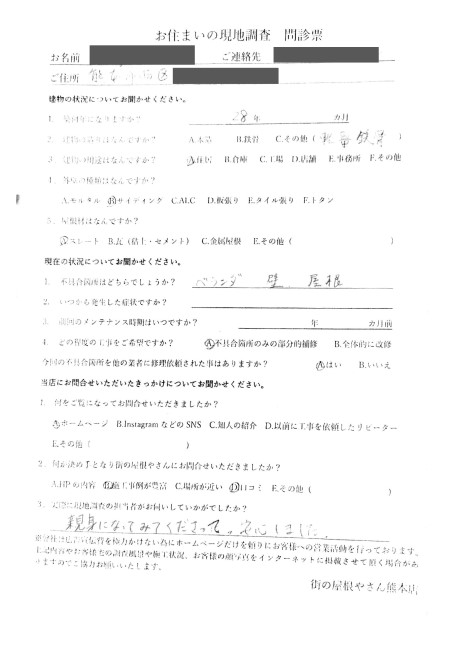 お住まいの現地調査 問診票
お名前 ご連絡先
ご住所 熊本市西区
建物の状況についてお聞かせください。
1. 築何年になりますか？ 28年 カ月
2. 建物の構造はなんですか？ A.木造 B.鉄骨 C.その他（ 軽量鉄骨 ）
3. 建物の用途はなんですか？ A.住居 B.倉庫 C.工場 D.店舗 E.事務所 F.その他
4. 外壁の種類はなんですか？
A.モルタル B.サイディング C.ALC D.板張り E.タイル張り F.トタン
5. 屋根材はなんですか？
A.スレート B.瓦（粘土・セメント） C.金属屋根 E.その他（ ）
現在の状況についてお聞かせください。
1. 不具合箇所はどちらでしょうか？ ベランダ 壁 屋根
2. いつから発生した症状ですか？
3. 前回のメンテナンス時期はいつですか？ 年 カ月前
4. どの程度の工事をご希望ですか？ A.不具合箇所のみの部分的補修 B.全体的に改修
今回の不具合箇所を他の業者に修理依頼された事はありますか？ A.はい B.いいえ
当店にお問合せいただいたきっかけについてお聞かせください。
1. 何をご覧になってお問合せいただきましたか？
A.ホームページ B.InstagramなどのSNS C.知人の紹介 D.以前に工事を依頼したリピーター
E.その他（ ）
2. 何が決め手となり街の屋根やさんにお問合せいただきましたか？
A.HPの内容 B.施工事例が豊富 C.場所が近い D.口コミ E.その他（ ）
3. 実際に現地調査の担当者がお伺いしていかがでしたか？
親身になってみてくださって。安心しました。
※弊社は広告宣伝費を極力かけない為にホームページだけを頼りにお客様への営業活動を行っております。
上記内容やお客様宅の調査風景や施工状況、お客様の顔写真をインターネットに掲載させて頂く場合があ
りますのでご協力お願いいたします。
街の屋根やさん熊本店